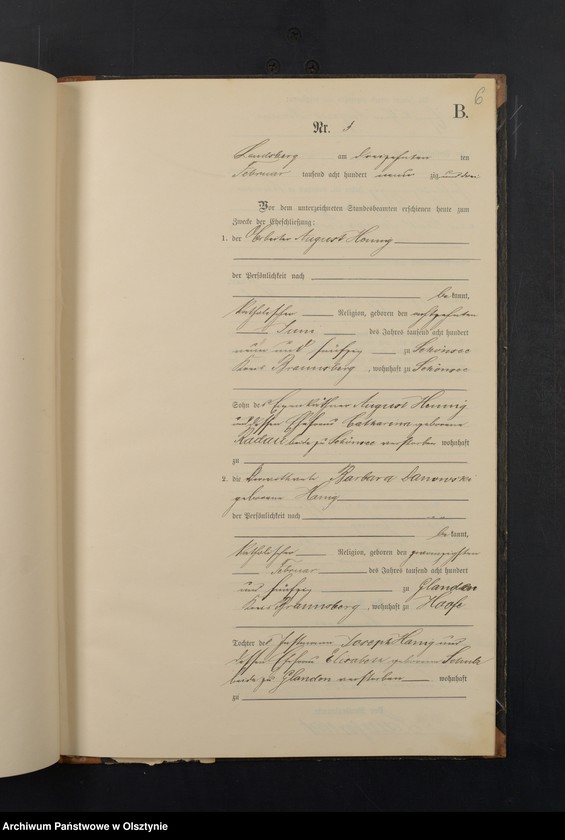 6
B.
Nr. 4
Landsberg am dreizehnten ten
Februar tausend acht hundert zig und drei
Vor dem unterzeichneten Standesbeamten erschienen heute zum
Zwecke der Eheschließung:
1. der Arbeiter August Hennig
der Persönlichkeit nach
be kannt,
katholischer Religion, geboren den
Juni des Jahres tausend acht hundert
neun und fünfzig zu Schönsee
Kreis Braunsberg, wohnhaft zu Schönsee
Sohn des Eigenkäthner August Hennig
und dessen Ehefrau Catharina geborene
Radau beide zu Schönsee verstorben wohnhaft
zu
2. die verwittwete Barbara Danowski
geborene Hanig
der Persönlichkeit nach
be kannt,
katholischer Religion, geboren den zwanzigsten
Februar des Jahres tausend acht hundert
und fünfzig zu Glanden
Kreis Braunsberg, wohnhaft zu Hoofe
Tochter des Instmann Joseph Hanig und
dessen Ehefrau Elisabeth geborene Schulz
beide zu Glanden verstorben wohnhaft
zu
Archiwum Państwowe w Olsztynie